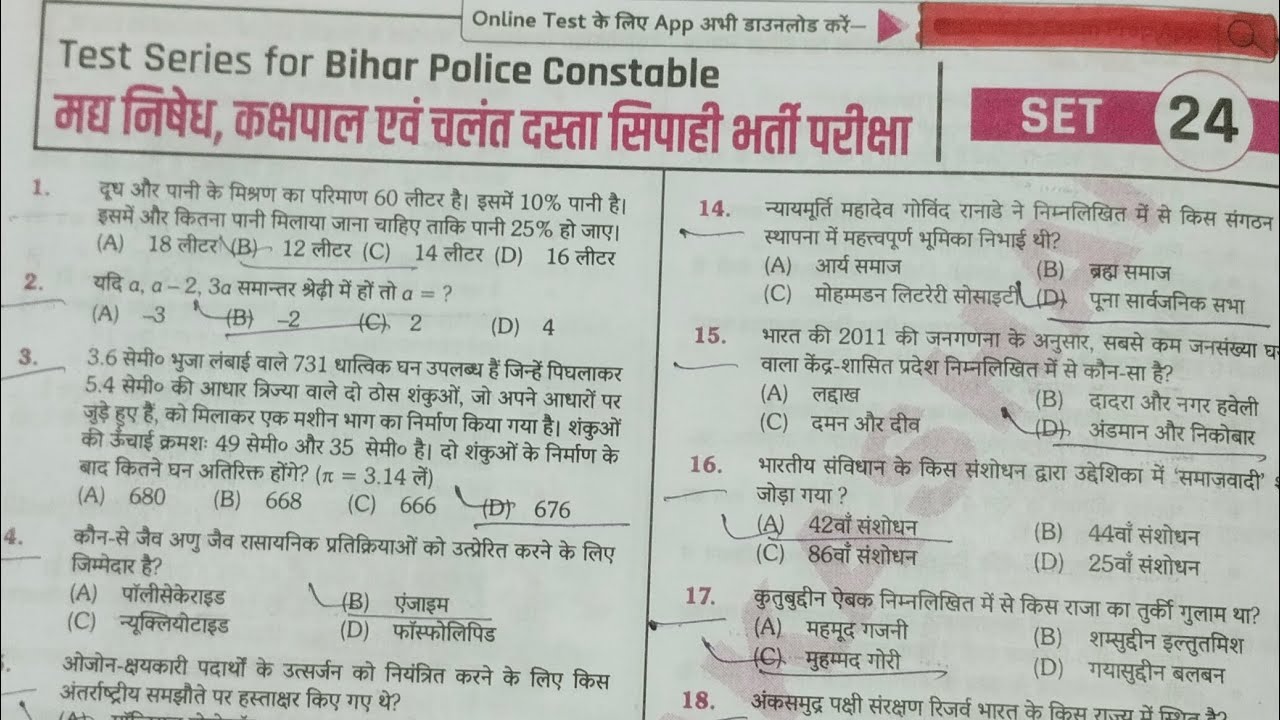 Online Test के लिए App अभी डाउनलोड करें—
Test Series for Bihar Police Constable
मद्य निषेध, कक्षपाल एवं चलंत दस्ता सिपाही भर्ती परीक्षा
SET 24
1. दूध और पानी के मिश्रण का परिमाण 60 लीटर है। इसमें 10% पानी है।
इसमें और कितना पानी मिलाया जाना चाहिए ताकि पानी 25% हो जाए।
(A) 18 लीटर (B) 12 लीटर (C) 14 लीटर (D) 16 लीटर
2. यदि a, a – 2, 3a समान्तर श्रेढ़ी में हों तो a = ?
(A) –3 (B) –2 (C) 2 (D) 4
3. 3.6 सेमी० भुजा लंबाई वाले 731 धात्विक घन उपलब्ध हैं जिन्हें पिघलाकर
5.4 सेमी० की आधार त्रिज्या वाले दो ठोस शंकुओं, जो अपने आधारों पर
जुड़े हुए हैं, को मिलाकर एक मशीन भाग का निर्माण किया गया है। शंकुओं
की ऊँचाई क्रमशः 49 सेमी० और 35 सेमी० है। दो शंकुओं के निर्माण के
बाद कितने घन अतिरिक्त होंगे? (π = 3.14 लें)
(A) 680 (B) 668 (C) 666 (D) 676
4. कौन-से जैव अणु जैव रासायनिक प्रतिक्रियाओं को उत्प्रेरित करने के लिए
जिम्मेदार है?
(A) पॉलीसेकेराइड (B) एंजाइम
(C) न्यूक्लियोटाइड (D) फॉस्फोलिपिड
ओजोन-क्षयकारी पदार्थों के उत्सर्जन को नियंत्रित करने के लिए किस
अंतर्राष्ट्रीय समझौते पर हस्ताक्षर किए गए थे?
14. न्यायमूर्ति महादेव गोविंद रानाडे ने निम्नलिखित में से किस संगठन
स्थापना में महत्त्वपूर्ण भूमिका निभाई थी?
(A) आर्य समाज (B) ब्रह्म समाज
(C) मोहम्मडन लिटरेरी सोसाइटी (D) पूना सार्वजनिक सभा
15. भारत की 2011 की जनगणना के अनुसार, सबसे कम जनसंख्या
वाला केंद्र-शासित प्रदेश निम्नलिखित में से कौन-सा है?
(A) लद्दाख (B) दादरा और नगर हवेली
(C) दमन और दीव (D) अंडमान और निकोबार
16. भारतीय संविधान के किस संशोधन द्वारा उद्देशिका में 'समाजवादी'
जोड़ा गया ?
(A) 42वाँ संशोधन (B) 44वाँ संशोधन
(C) 86वाँ संशोधन (D) 25वाँ संशोधन
17. कुतुबुद्दीन ऐबक निम्नलिखित में से किस राजा का तुर्की गुलाम था?
(A) महमूद गजनी (B) शम्सुद्दीन इल्तुतमिश
(C) मुहम्मद गोरी (D) गयासुद्दीन बलबन
18. अंकसमुद्र पक्षी संरक्षण रिजर्व भारत के किस राज्य में स्थित है?